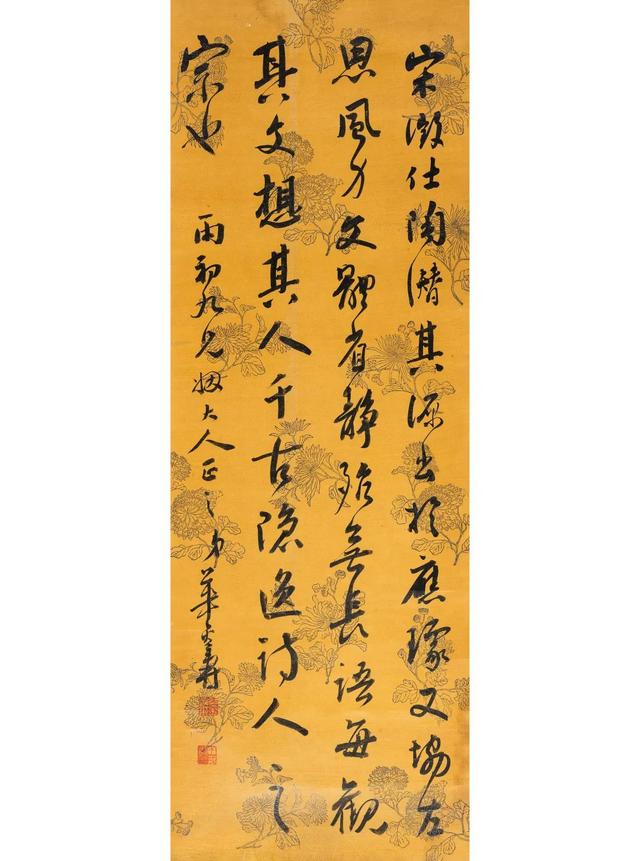 宋徵仕陶潛其源出於應璩又協左
思風力文體省靜殆無長語每觀
其文想其人千古隱逸詩人之
宗也
雨初九兄姻大人正之弟